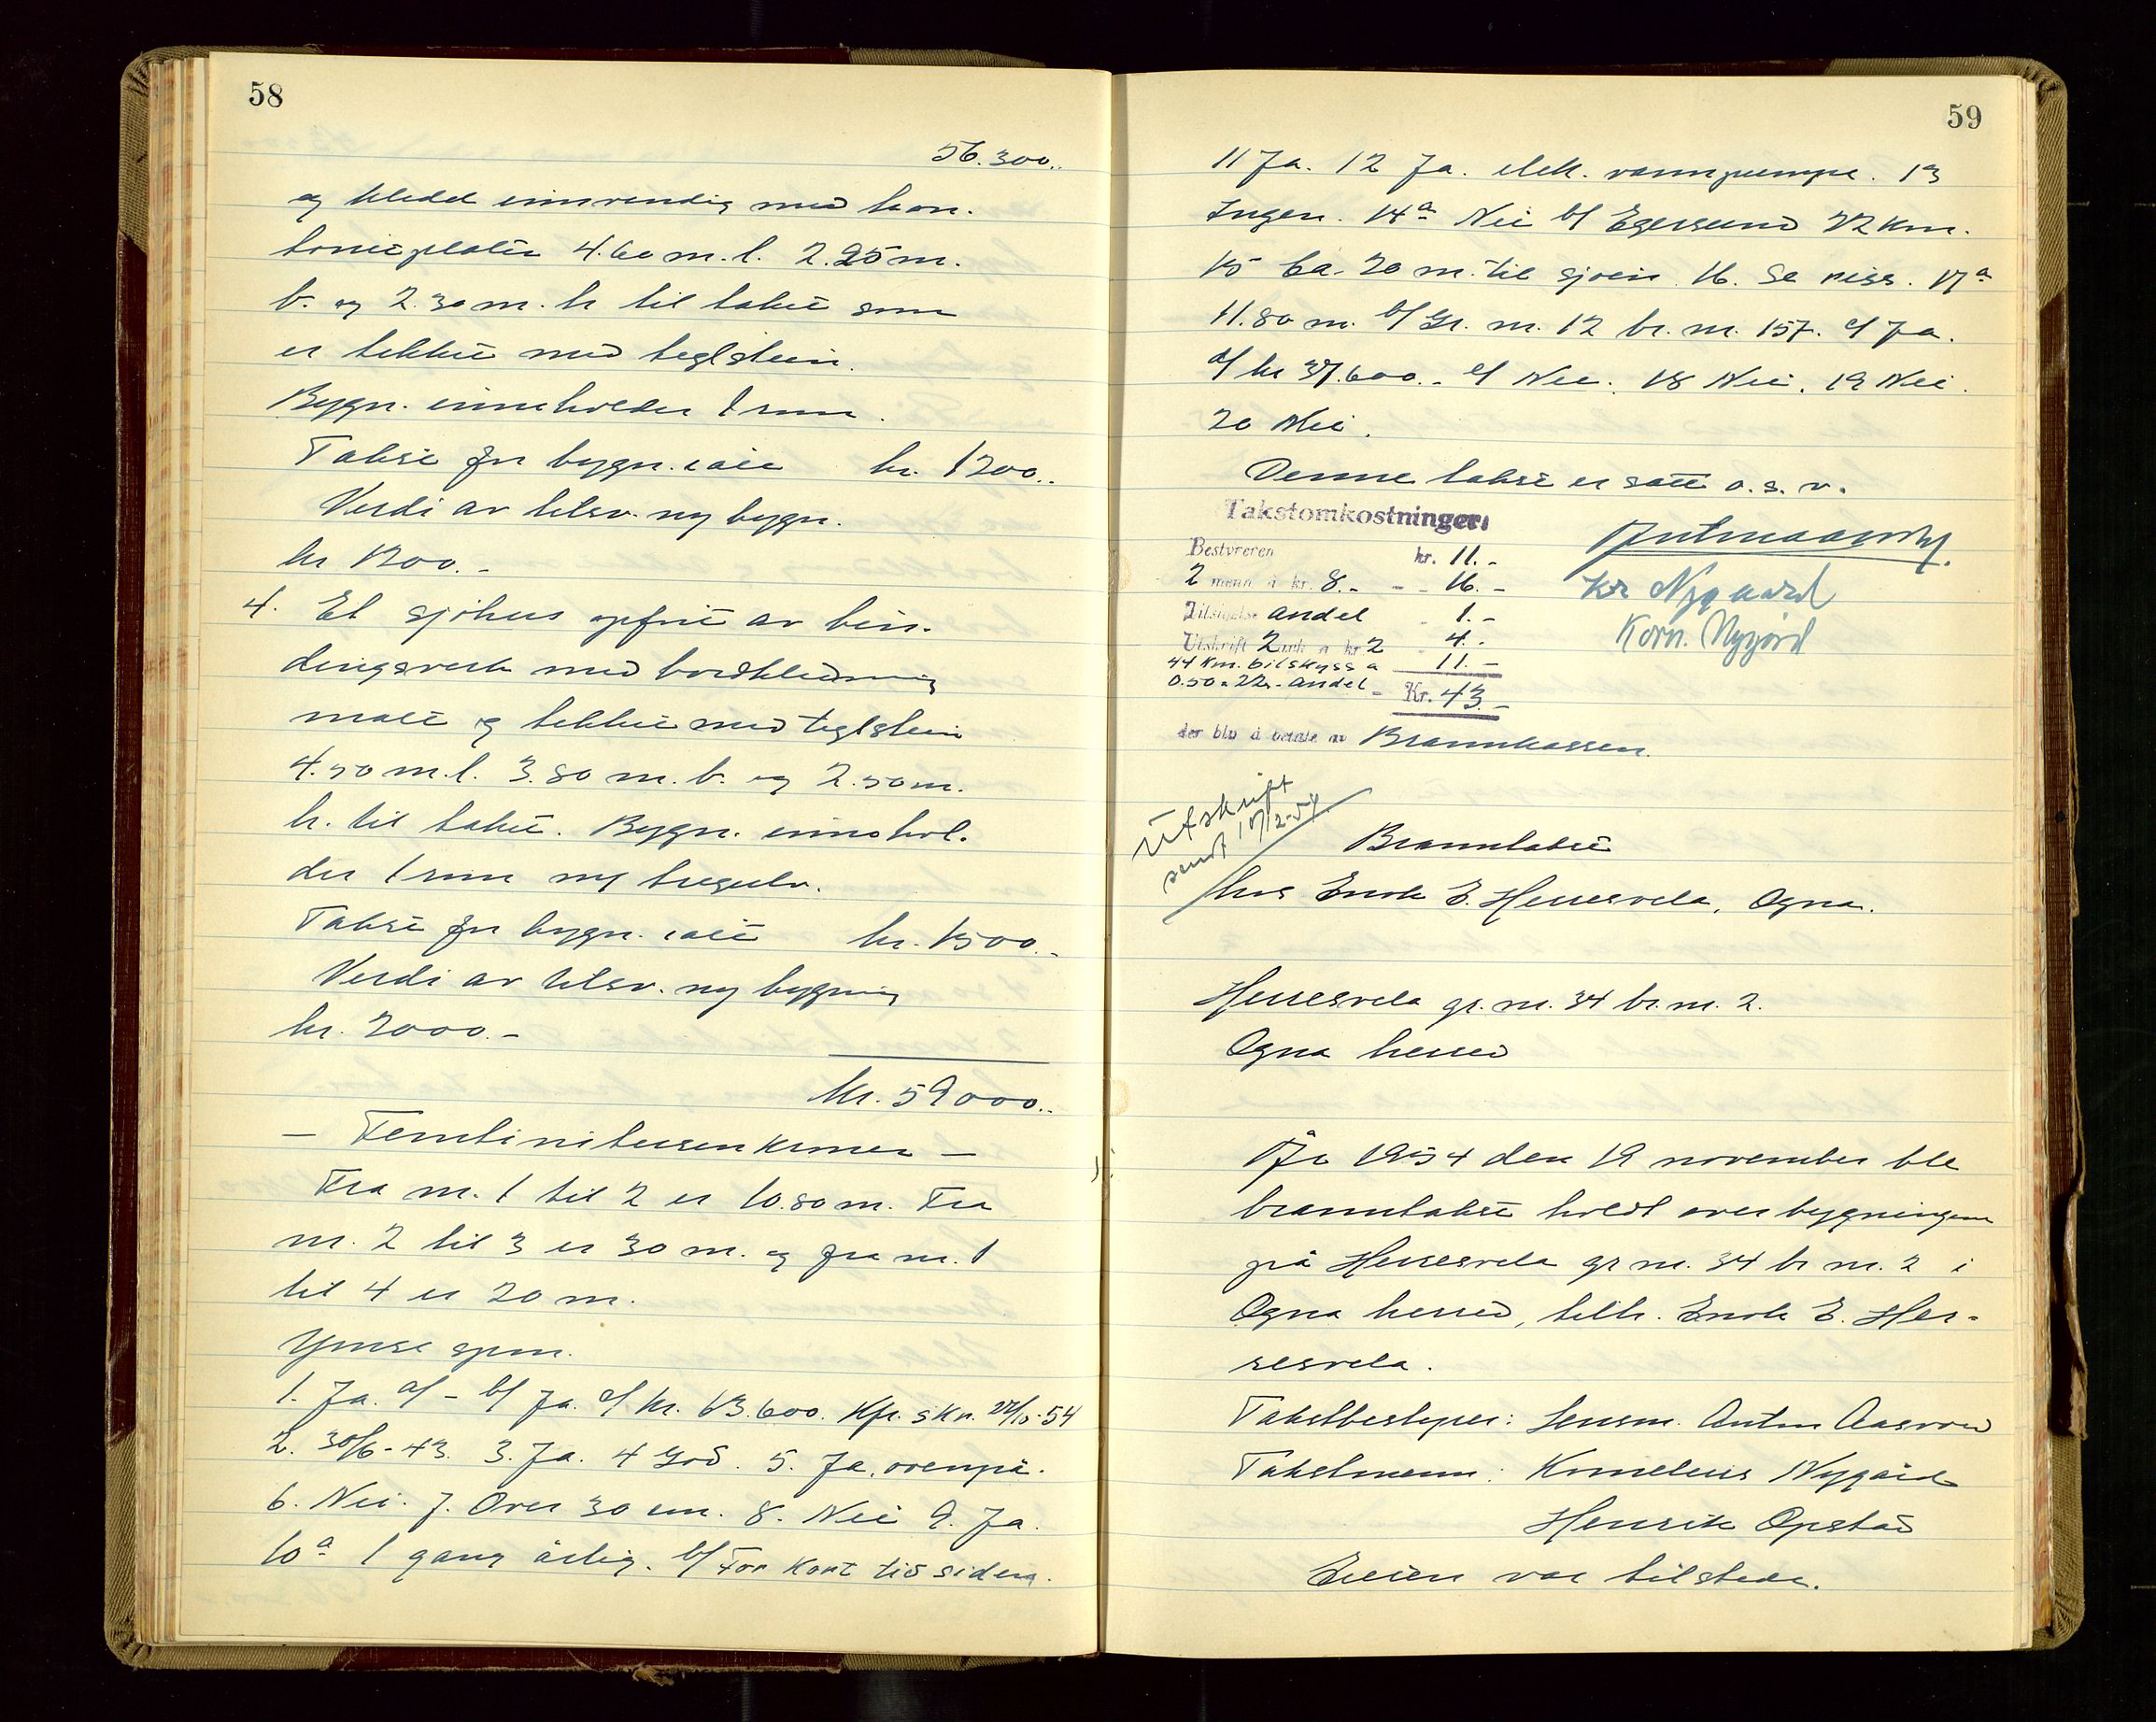 58
56.300.-
og kledd innvendig med kar-
tonieplater 4.60 m. l. 2.25 m.
b. og 2.30 m. h til taket som
er tekket med teglstein.
Bygn. inneholder 1 rum.
Takst for bygn. satt kr. 1200.-
Verdi av tilsv. ny bygn.
kr 1200.-
4. Et sjøhus opført av bin-
dingsverk med bordkledning
malt og tekket med teglstein
4.50 m. l. 3.80 m. b. og 2.50 m.
h. til taket. Bygn. innehol-
der 1 rum m/ tregulv.
Takst for bygn. satt kr. 1500.-
Verdi av tilsv. ny bygning
kr. 2000.-
Kr. 59000.-
- Femtinitusen kroner -
Fra nr. 1 til 2 er 10.80 m. Fra
nr. 2 til 3 er 30 m. og fra nr. 1
til 4 er 20 m.
Ymse spm.
1. Ja. a/ - b/ Ja. c/ kr. 63.600. Kfr. skr. 22/10-54
2. 30/6-43. 3. Ja. 4 God. 5. Ja, ovenpå.
6. Nei. 7. Over 30 cm. 8. Nei 9. Ja.
10 a 1 gang årlig. b/ For kort tid siden.
59
11 Ja. 12 Ja. elek. vannpumpe. 13
Ingen. 14 a Nei b/ Egersund 22 km.
15 Ca. 20 m. til sjøen. 16. Se riss. 17 a
11.80 m. b/ Gr. nr. 12 br. nr. 157. c/ Ja.
d/ kr 37.600.- e/ Nei. 18 Nei. 19 Nei.
20 Nei.
Denne takst er satt o. s. v.
Takstomkostninger
Bestyreren kr. 11.-
2 menn à kr. 8.- - 16.-
Tilsigelse andel - 1.-
Utskrift 2 ark à kr 2 - 4.-
44 km. bilskyss a 11.-
0.50 = 22.- andel - Kr. 43.-
Kr Nygaard
Korn. Nygård
der blir å betale av Brannkassen.
Utskrift
sendt 17/12-54
Branntakst
hos Enok E. Herresvela, Ogna.
Herresvela gr. nr. 34 br. nr. 2.
Ogna herred
År 1954 den 19 november ble
branntakst holdt over bygningene
på Herresvela gr nr. 34 br nr. 2 i
Ogna herred, tilh. Enok E. Her-
resvela.
Takstbestyrer: Lensm. Anton Aasvold
Takstmenn: Kornelius Nygård
Henrik Opstad
Eieren var tilstede.